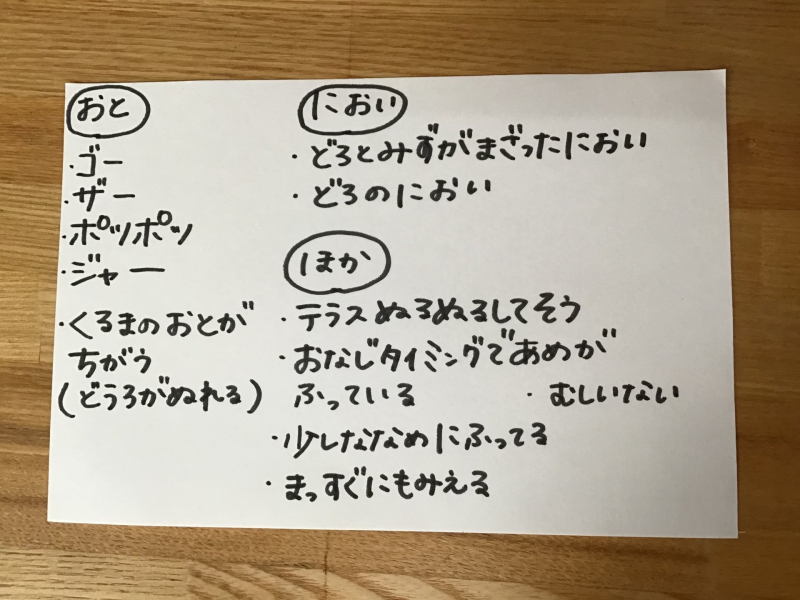 おと
・ゴー
・ザー
・ポツポツ
・ジャー
・くるまのおとが
ちがう
(どうろがぬれる)
におい
・どろとみずがまざったにおい
・どろのにおい
ほか
・テラスぬるぬるしてそう
・おなじタイミングであめが
ふっている
・むしいない
・少しななめにふってる
・まっすぐにもみえる